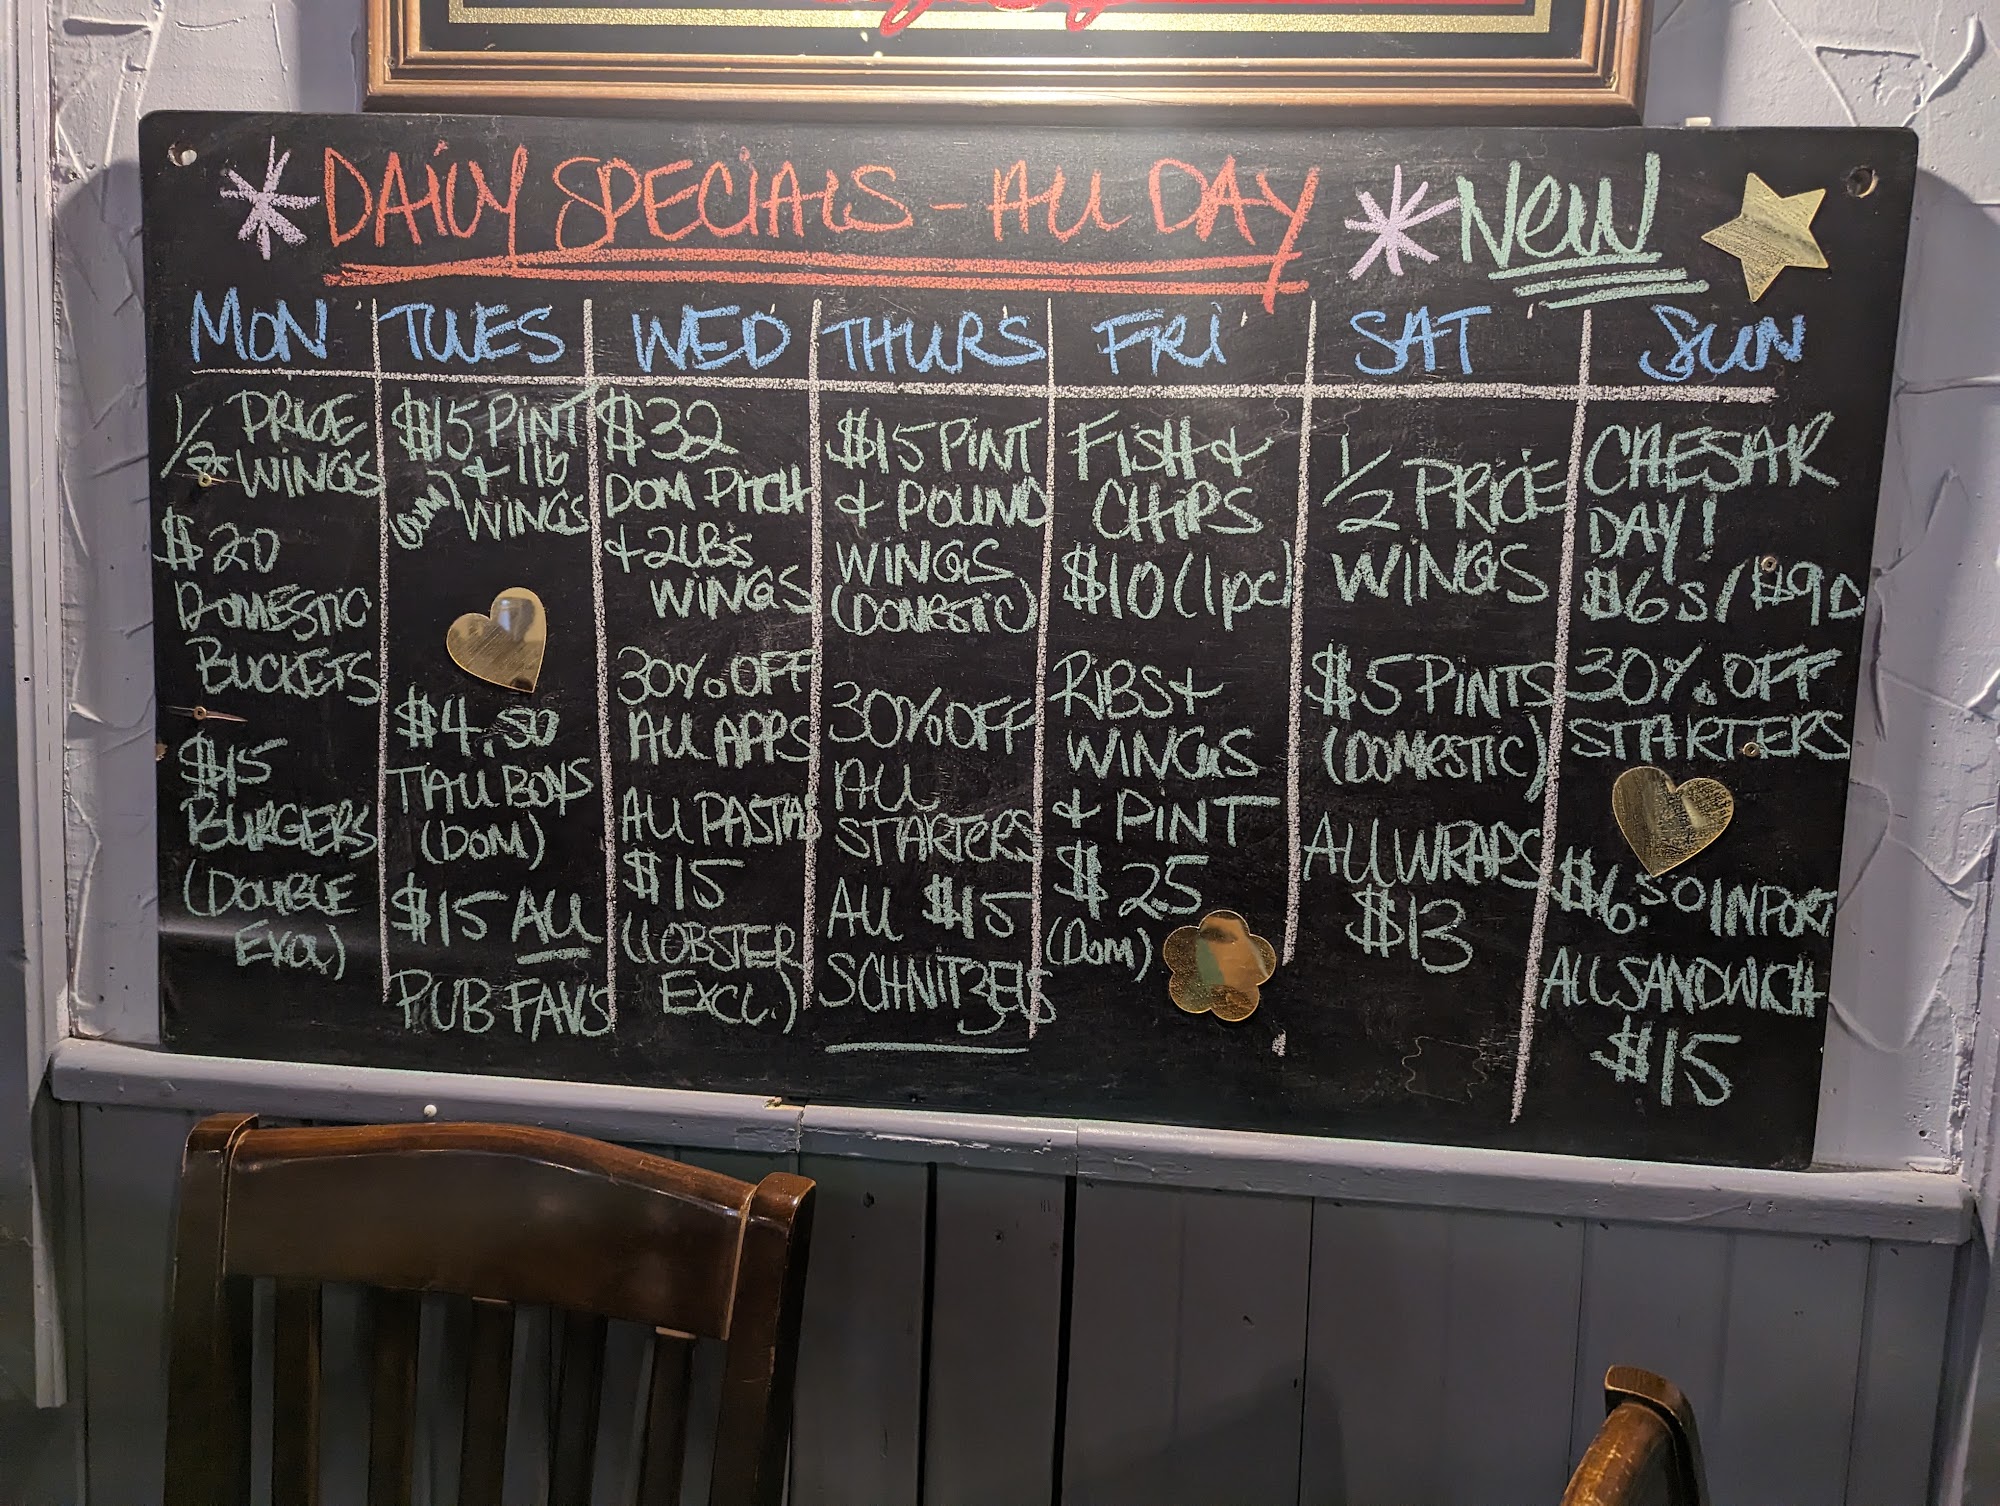 DAILY SPECIALS - ALL DAY
NEW
MON
1/2 PRICE
WINGS
$20
DOMESTIC
BUCKETS
$15
BURGERS
(DOUBLE
EXCL)
TUES
$15 PINT
(DOM) + 1lb
WINGS
$4.50
TALL BOYS
(DOM)
$15 ALL
PUB FAV'S
WED
$32
DOM PITCH
+ 2LB'S
WINGS
30% OFF
ALL APPS
ALL PASTAS
$15
(LOBSTER
EXCL.)
THURS
$15 PINT
& POUND
WINGS
(DOMESTIC)
30% OFF
ALL
STARTERS
ALL $15
SCHNITZELS
FRI
FISH &
CHIPS
$10 (1pc)
RIBS +
WINGS
& PINT
$25
(DOM)
SAT
1/2 PRICE
WINGS
$5 PINTS
(DOMESTIC)
ALL WRAPS
$13
SUN
CAESAR
DAY!
$6 S / $9 D
30% OFF
STARTERS
$6.50 IMPORT
ALL SANDWICH
$15